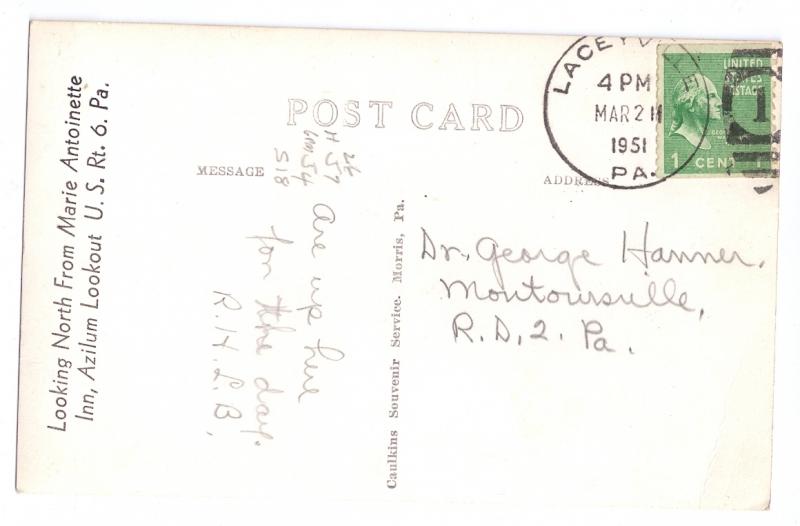 Looking North From Marie Antoinette
Inn, Azilum Lookout U. S. Rt. 6. Pa.
POST CARD
MESSAGE
ADDRESS
Are up here
for the day.
R.H.L.B,
518
Caulkins Souvenir Service. Morris, Pa.
LACEYVILLE
4 PM
MAR 21
1951
PA.
UNITED
STATES
POSTAGE
1 CENT 1
Dr. George Hanner.
Montoursville,
R.D,2. Pa.